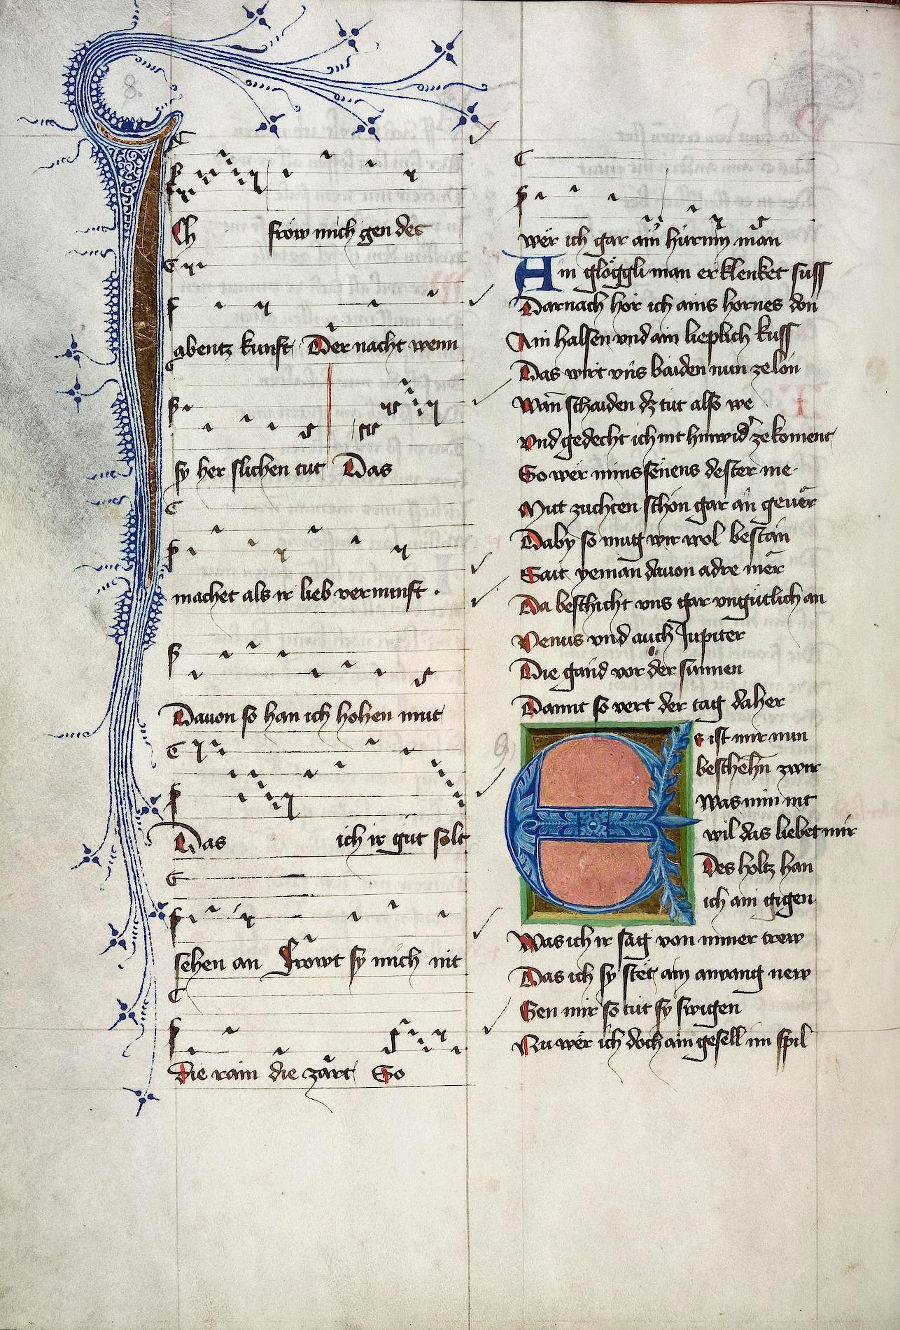 8.
Ich frow mich gen des
abentz kunft Der nacht wenn
sy her slichen tut Das
machet als ir lieb vernunft ·
Davon so han ich hohen mut
Das ich ir gůt solt
sehen an Frowt sy mich nit
Die rain die zart So
wer ich gar ain hürnin man
Ain glöggli man erklenket suss
Darnach hör ich ains hornes don
Ain halsen und ain lieplich kuss
Das wirt uns baiden nun ze lon
Wan schaiden dz tut also we
Und gedecht ich nit hinwider ze koment
So wer mins senens dester me
Mit zuchten schon gar an gever
Daby so mug wir wol bestan
Sait yeman davon adre mer
Da beschicht uns gar ungütlich an
Venus und auch Jupiter
Die gand vor der sunnen
Damit so vert der tag daher
9)
Es ist mir nun
beschehn zwir
Was min nit
wil das liebet mir
Des holtz han
ich ain gigen
Was ich ir sag von miner trew
Das ich sy stet ain anvang new
Gen mir so tut sy swigen
Nu wer ich doch ain gesell im spil